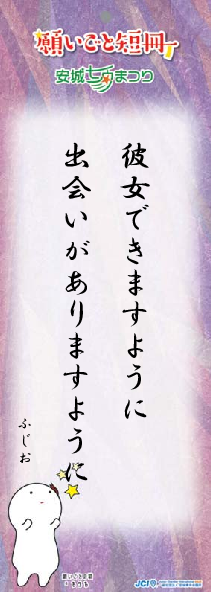 願いごと短冊
安城七夕まつり
彼女できますように
出会いがありますように
ふじお
JCI